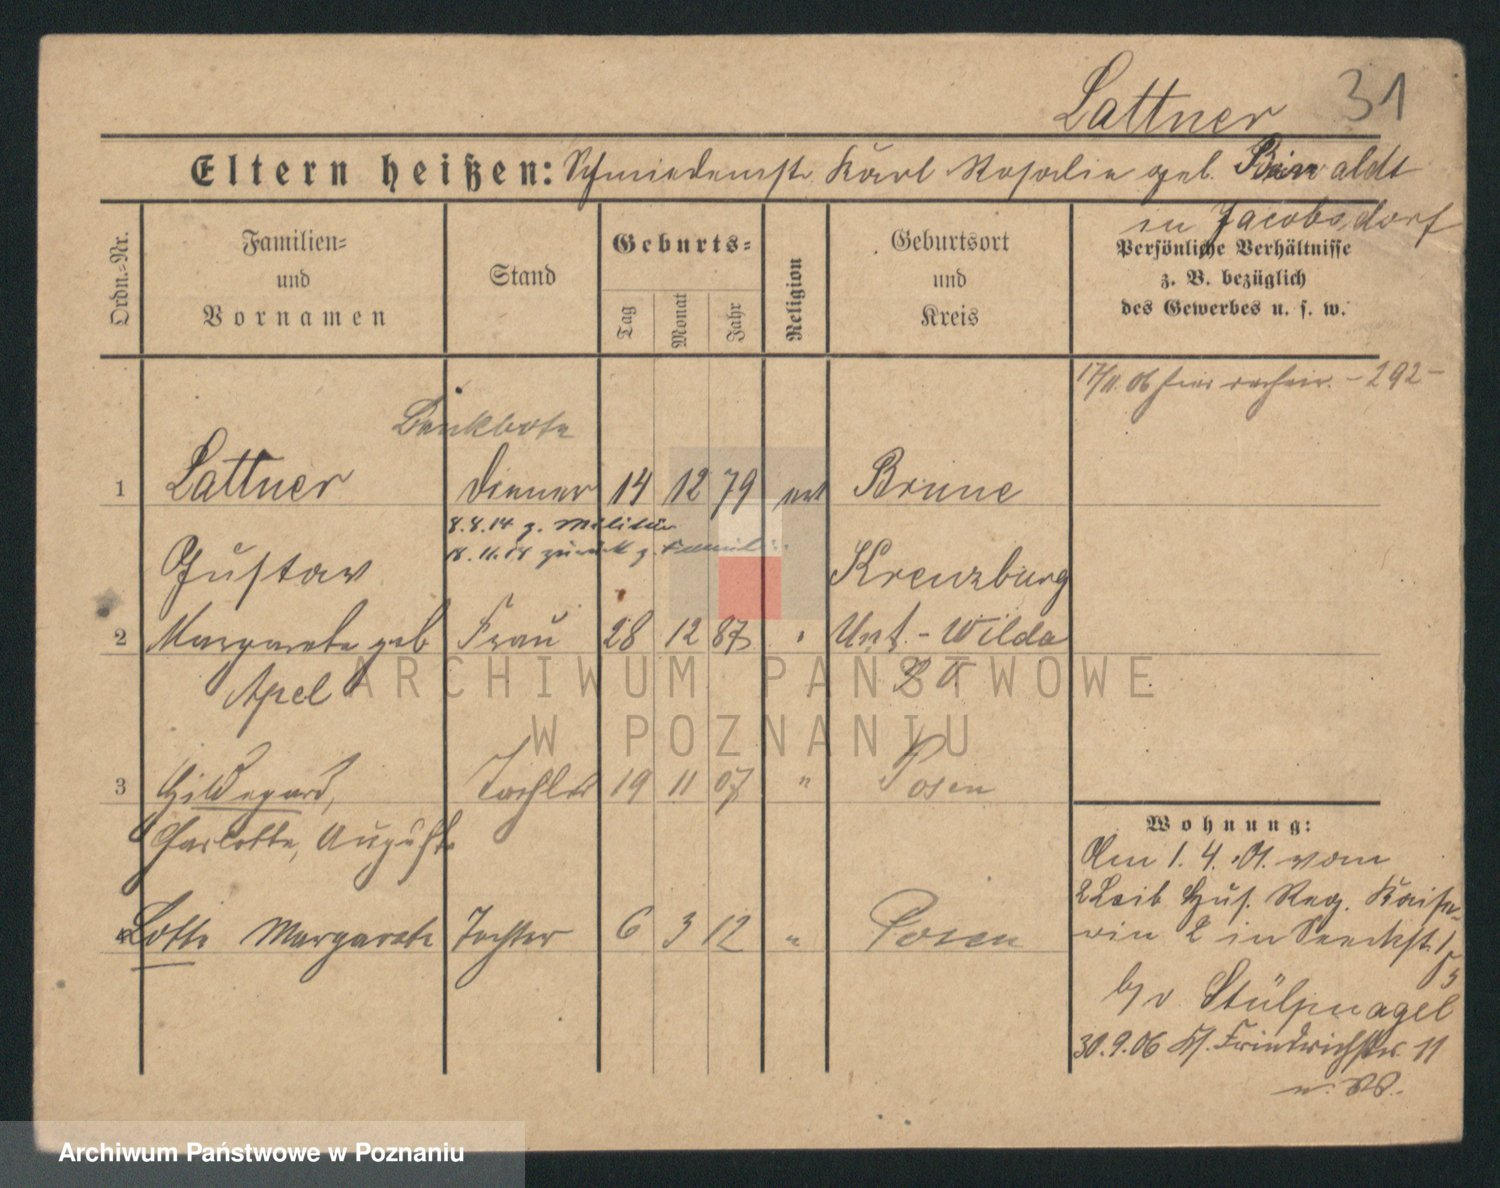 Lattner 31
Eltern heißen: Schmiedemstr. Karl Rosalie geb. Binwaldt
in Jacobsdorf
Ordn.-Nr.
Familien-
und
Vornamen
Stand
Geburts-
Tag
Monat
Jahr
Religion
Geburtsort
und
Kreis
Persönliche Verhältnisse
z. B. bezüglich
des Gewerbes u. s. w.
17/11.06 - 292 -
Bankbote
1 Lattner Diener 14 12 79 Brune
8.8.14 z. Militär
18.11.18 zurück z. Familie
Gustav Kreuzburg
2 Margarete geb Frau 28 12 87 " Unt.-Wilda
Apel
3 Hildegard, Tochter 19 11 07 " Posen
Charlotte, Auguste
4 Lotte Margarete Tochter 6 3 12 " Posen
Wohnung:
Am 1. 4. 01. vom
2 Leib Hus. Reg. Kaise-
rin 2 in
b/v Stülpnagel
30.9.06 Friedrichstr. 11
ARCHIWUM PAŃSTWOWE
W POZNANIU
Archiwum Państwowe w Poznaniu